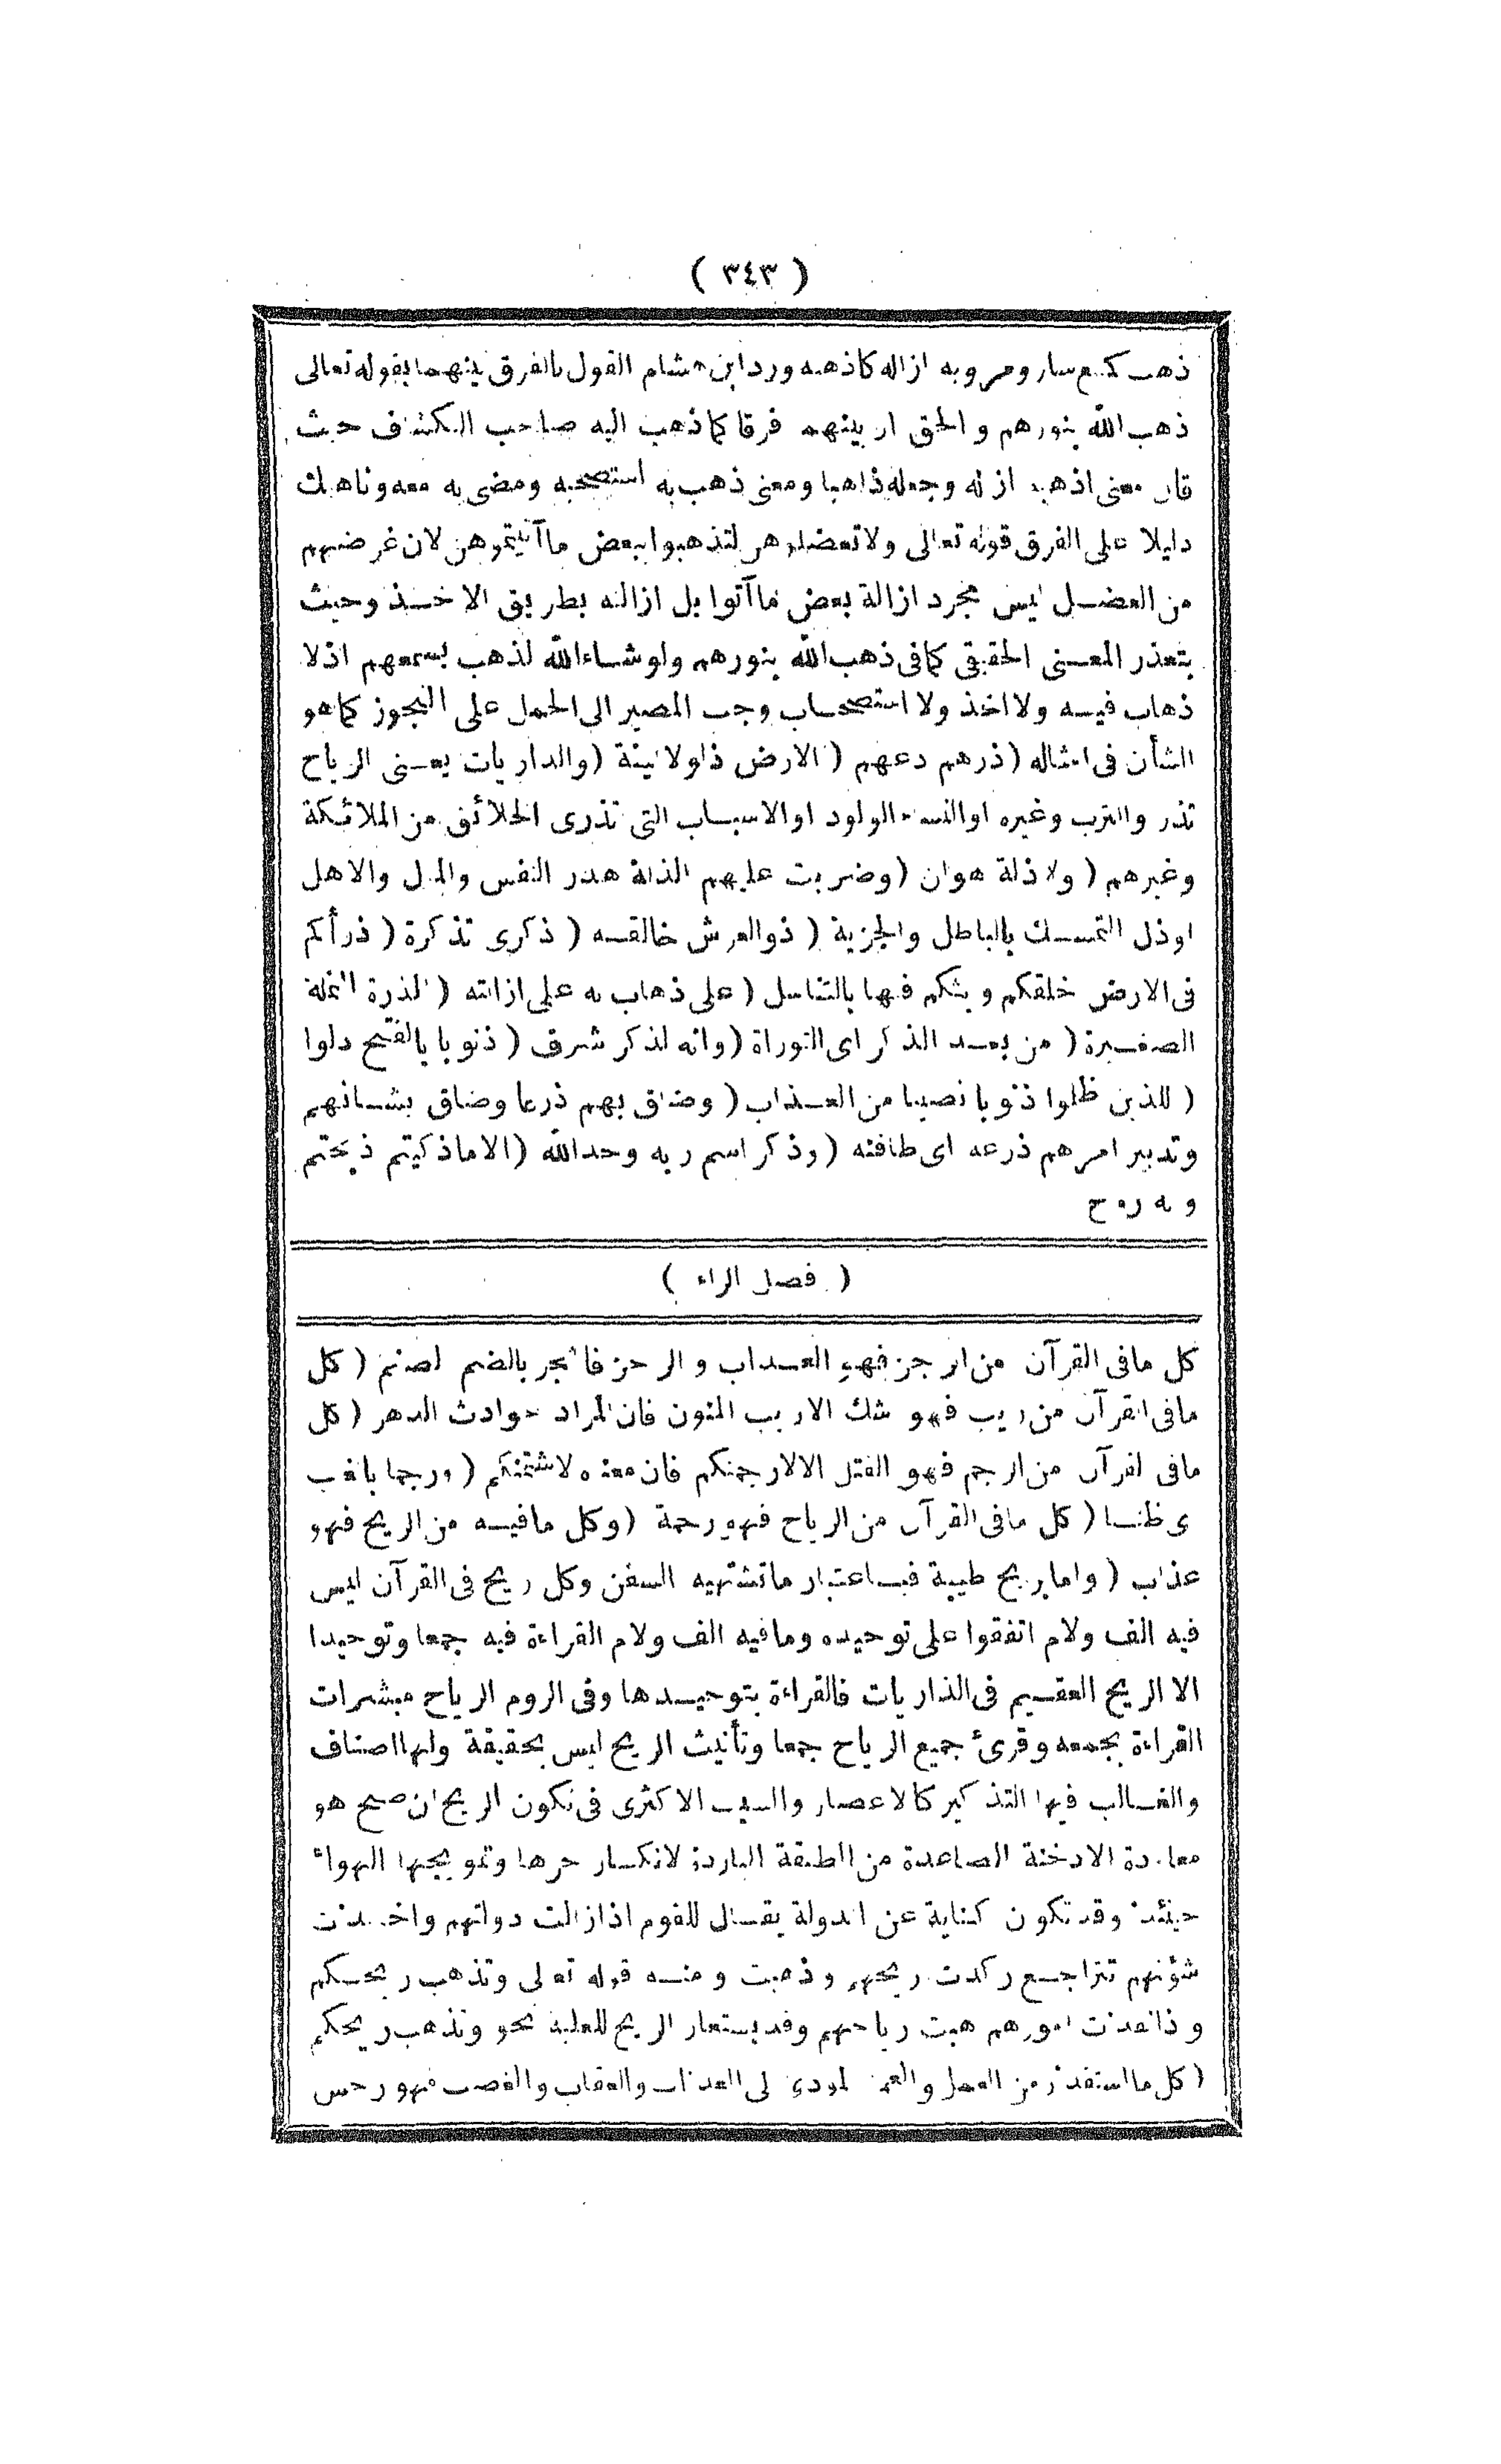 ( ٣٤٣ )
ذهب كمنع سار ومر وبه ازاله كاذهبه ورد ابن هشام القول بالفرق بينهما بقوله تعالى
ذهب الله بنورهم والحق ان بينهما فرقا كما ذهب اليه صاحب الكشاف حيث
قال معنى اذهبه ازاله وجعله ذاهبا ومعنى ذهب به استصحبه ومضى به معه وناهيك
دليلا على الفرق قوله تعالى ولا تعضلوهن لتذهبوا ببعض ما آتيتموهن لان غرضهم
من العضل ليس مجرد ازالة بعض ما آتوا بل ازالته بطريق الاخذ وحيث
يتعذر المعنى الحقيقى كما فى ذهب الله بنورهم ولو شاء الله لذهب بسمعهم اذ لا
ذهاب فيه ولا اخذ ولا استصحاب وجب المصير الى الحمل على التجوز كما هو
الشأن فى امثاله ( ذرهم دعهم ( الارض ذلولا لينة ( والذاريات يعنى الرياح
تذر والترب وغيره او النساء الولود او الاسباب التى تذرى الخلائق من الملائكة
وغيرهم ( ولا ذلة هوان ( وضربت عليهم الذلة هدر النفس والمال والاهل
او ذل التمسك بالباطل والجزية ( ذو العرش خالقه ( ذكرى تذكرة ( ذرأكم
فى الارض خلقكم وبثكم فيها بالتناسل ( على ذهاب به على ازالته ( الذرة النملة
الصغيرة ( من بعد الذكر اى التوراة ( وانه لذكر شرف ( ذنوبا بالفتح دلوا
( للذين ظلموا ذنوبا نصيبا من العذاب ( وضاق بهم ذرعا وضاق بشانهم
وتدبير امرهم ذرعه اى طاقته ( وذكر اسم ربه وحد الله ( الا ما ذكيتم ذبحتم
وبه روح
( فصل الراء )
كل ما فى القرآن من الرجز فهو العذاب والرجز فاهجر بالضم الصنم ( كل
ما فى القرآن من ريب فهو شك الا ريب المنون فان المراد حوادث الدهر ( كل
ما فى القرآن من الرجم فهو القتل الا لارجمنكم فان معناه لاشتمنكم ( ورجما بالغيب
اى ظنا ( كل ما فى القرآن من الرياح فهو رحمة ( وكل ما فيه من الريح فهو
عذاب ( واما بريح طيبة فباعتبار ما تشتهيه السفن وكل ريح فى القرآن ليس
فيه الف ولام اتفقوا على توحيده وما فيه الف ولام القراءة فيه جمعا وتوحيدا
الا الريح العقيم فى الذاريات فالقراءة بتوحيدها وفى الروم الرياح مبشرات
القراءة بجمعه وقرئ جميع الرياح جمعا وتأنيث الريح ليس بحقيقة ولها اصناف
والغالب فيها التذكير كالاعصار والسبب الاكثرى فى تكون الريح ان صح هو
معاودة الادخنة الصاعدة من الطبقة الباردة لانكسار حرها وتمويجها الهواء
حينئذ وقد تكون كناية عن الدولة يقال للقوم اذا زالت دولتهم واخذت
شؤنهم تتراجع ركدت ريحهم وذهبت ومنه قوله تعالى وتذهب ريحكم
واذا نفذت امورهم هبت رياحهم وقد يستعار الريح للغلبة نحو وتذهب ريحكم
( كل ما استقذر من العمل والعمل المودى الى العذاب والعقاب والغضب فهو رجس